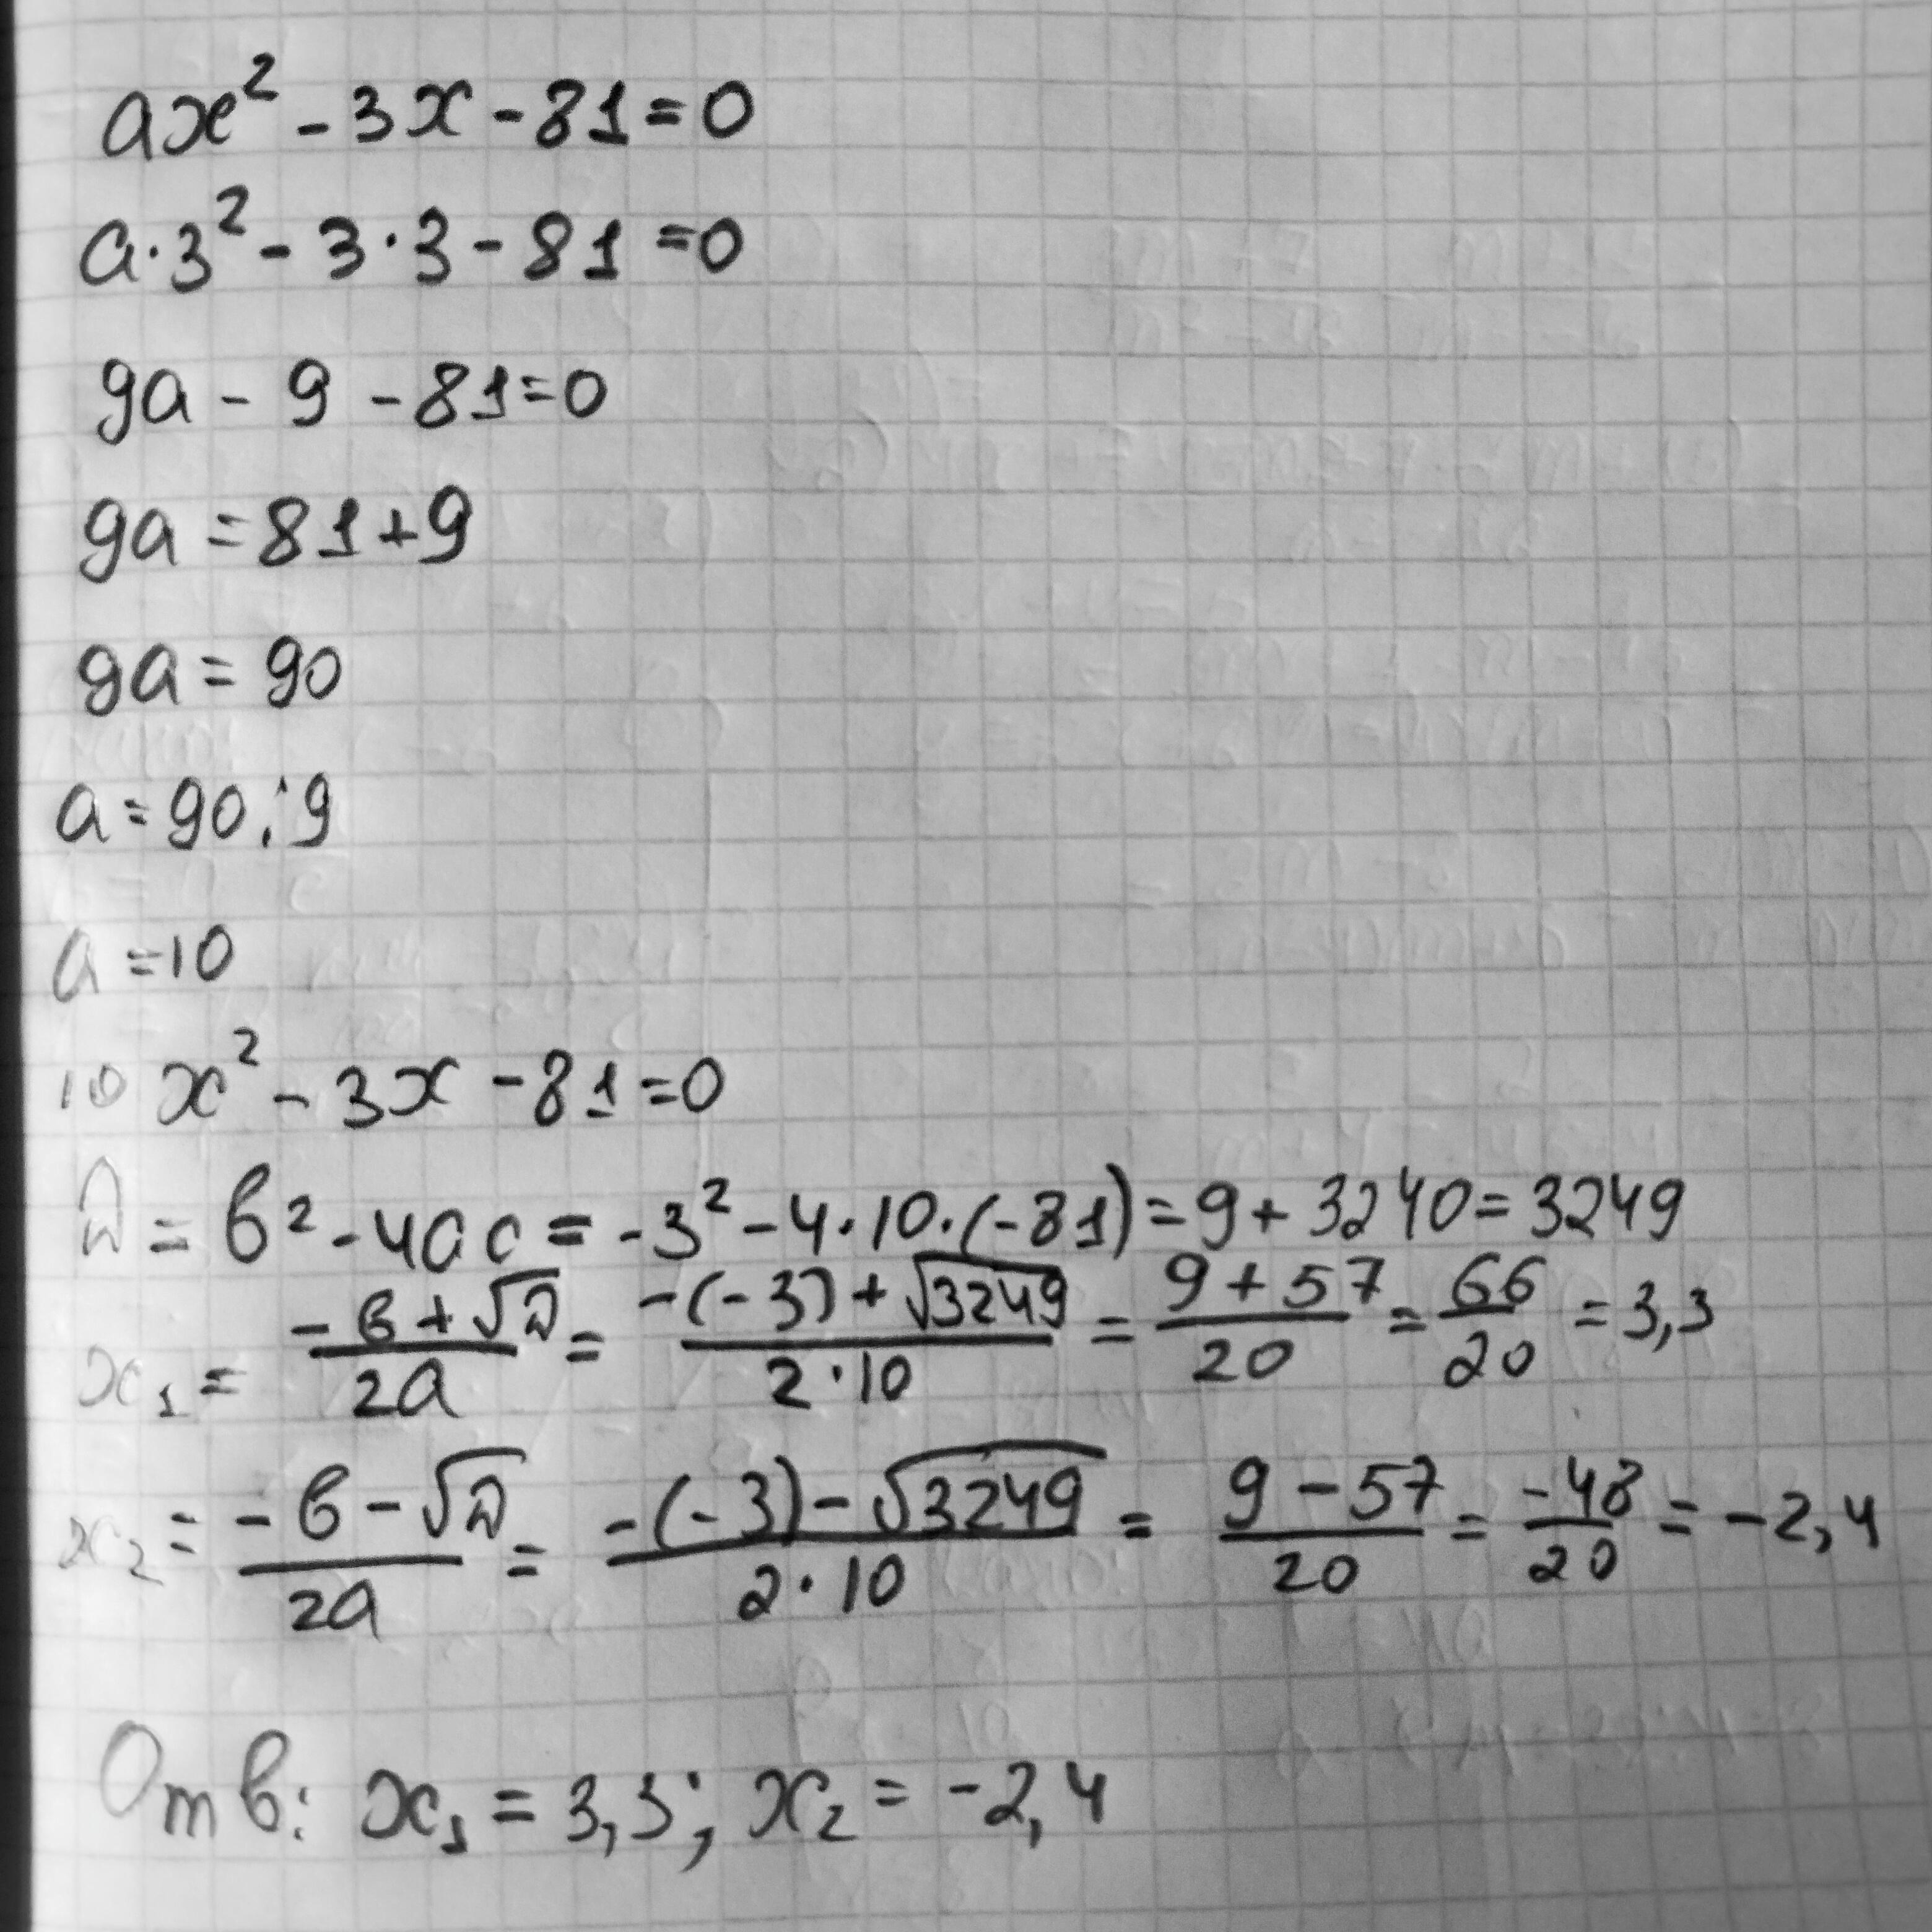 ax² - 3x - 81 = 0
a · 3² - 3 · 3 - 81 = 0
9a - 9 - 81 = 0
9a = 81 + 9
9a = 90
a = 90 : 9
a = 10
10x² - 3x - 81 = 0
D = в² - 4ac = -3² - 4 · 10 · (-81) = 9 + 3240 = 3249
x₁ = (-в + √D)/(2a) = (-(-3) + √3249)/(2 · 10) = (9 + 57)/20 = 66/20 = 3,3
x₂ = (-в - √D)/(2a) = (-(-3) - √3249)/(2 · 10) = (9 - 57)/20 = -48/20 = -2,4
Отв: x₁ = 3,3; x₂ = -2,4